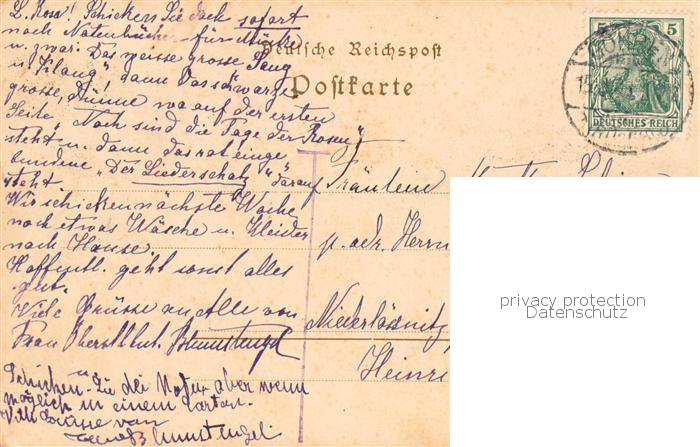 L. Rosa! Schicken Sie doch sofort
noch Notenbücher für Mücke
u. zwar: Das weisse grosse "Sang
u. Klang" dann Das schwarze
grosse, dünne wo auf der ersten
Seite "Noch sind die Tage der Rosen"
steht u. dann das rot einge
bundene "Der Liederschatz" darauf
steht.
Wir schicken nächste Woche
noch etwas Wäsche u. Kleider
nach Hause.
Hoffentl. geht sonst alles
gut.
Viele Grüsse an Alle von
Frau Oberstltnt. Blumstengel
Schicken Sie die Noten aber wenn
möglich in einem Carton.
Viele Grüsse von
Deutsche Reichspost
Postkarte
5 5
DEUTSCHES REICH
Fräulein
p. adr. Herrn
Niederlössnitz
Heinri
privacy protection
Datenschutz